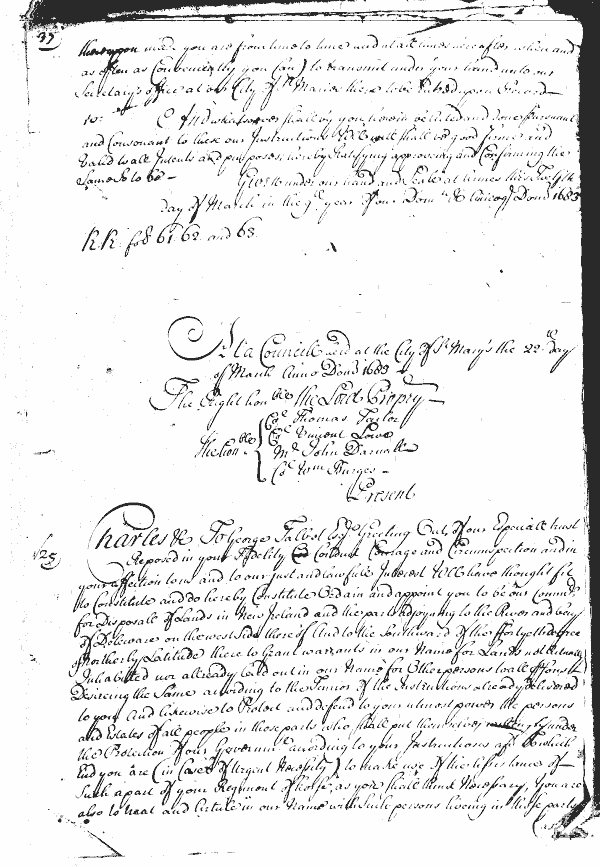 37
thereupon made you are from time to time and at all times hereafter when and
as often as Conveniently you Can) to transmit under your hand unto our
Secretary's office at our City of St Maries there to be Entred upon Record—
And whatsoever shall by you therein be Acted and done pursuant
and Consonant to these our Instructions Wee will shall be good firme and
Valid to all Intents and purposes hereby Ratifying approving and Confirming the
Same So to be— Given under our hand and Seale at armes this Twelfth
day of March in the 9th year of our Domn &c Annoq Dom 1683
R. R. fol 61. 62. and 63.
At a Councill held at the City of St Mary's the 22th day
of March Anno Dom 1683
The Right honble the Lord Propry—
The honble
Col Thomas Tailor
Col Vincent Lowe
Mr John Darnall
Col Wm Burges—
Present
Charles &c To George Talbot Esqr Greeting Out of our Especiall trust
Reposed in your Fidelity Conduct Carriage and Circumspection and in
your affection to us and to our just and lawfull Interest Wee have thought fit
to Constitute and do hereby Constitute Ordain and appoint you to be our
for Disposall of Lands in New Ireland and the parts adjoyning to the River and bay
of Deleware on the west side thereof And to the Southward of the fortyeth degree
of Northerly Latitude there to Grant warrants in our Name for Lands not Actually
Inhabited nor already laid out in our Name for Other persons to all
Desireing the Same according to the Tennor of the Instructions already delivered
to you And likewise to Protect and defend to your utmost power the persons
and Estates of all people in those parts who shall put themselves under
the Protection of our Governmt according to your Instructions
End you are (in Case of Urgent Necessity) to make use of
Such a part of your Regiment of horse, as you shall think Necessary, You are
also to treat and Article in our Name with Such persons liveing in those parts
(as